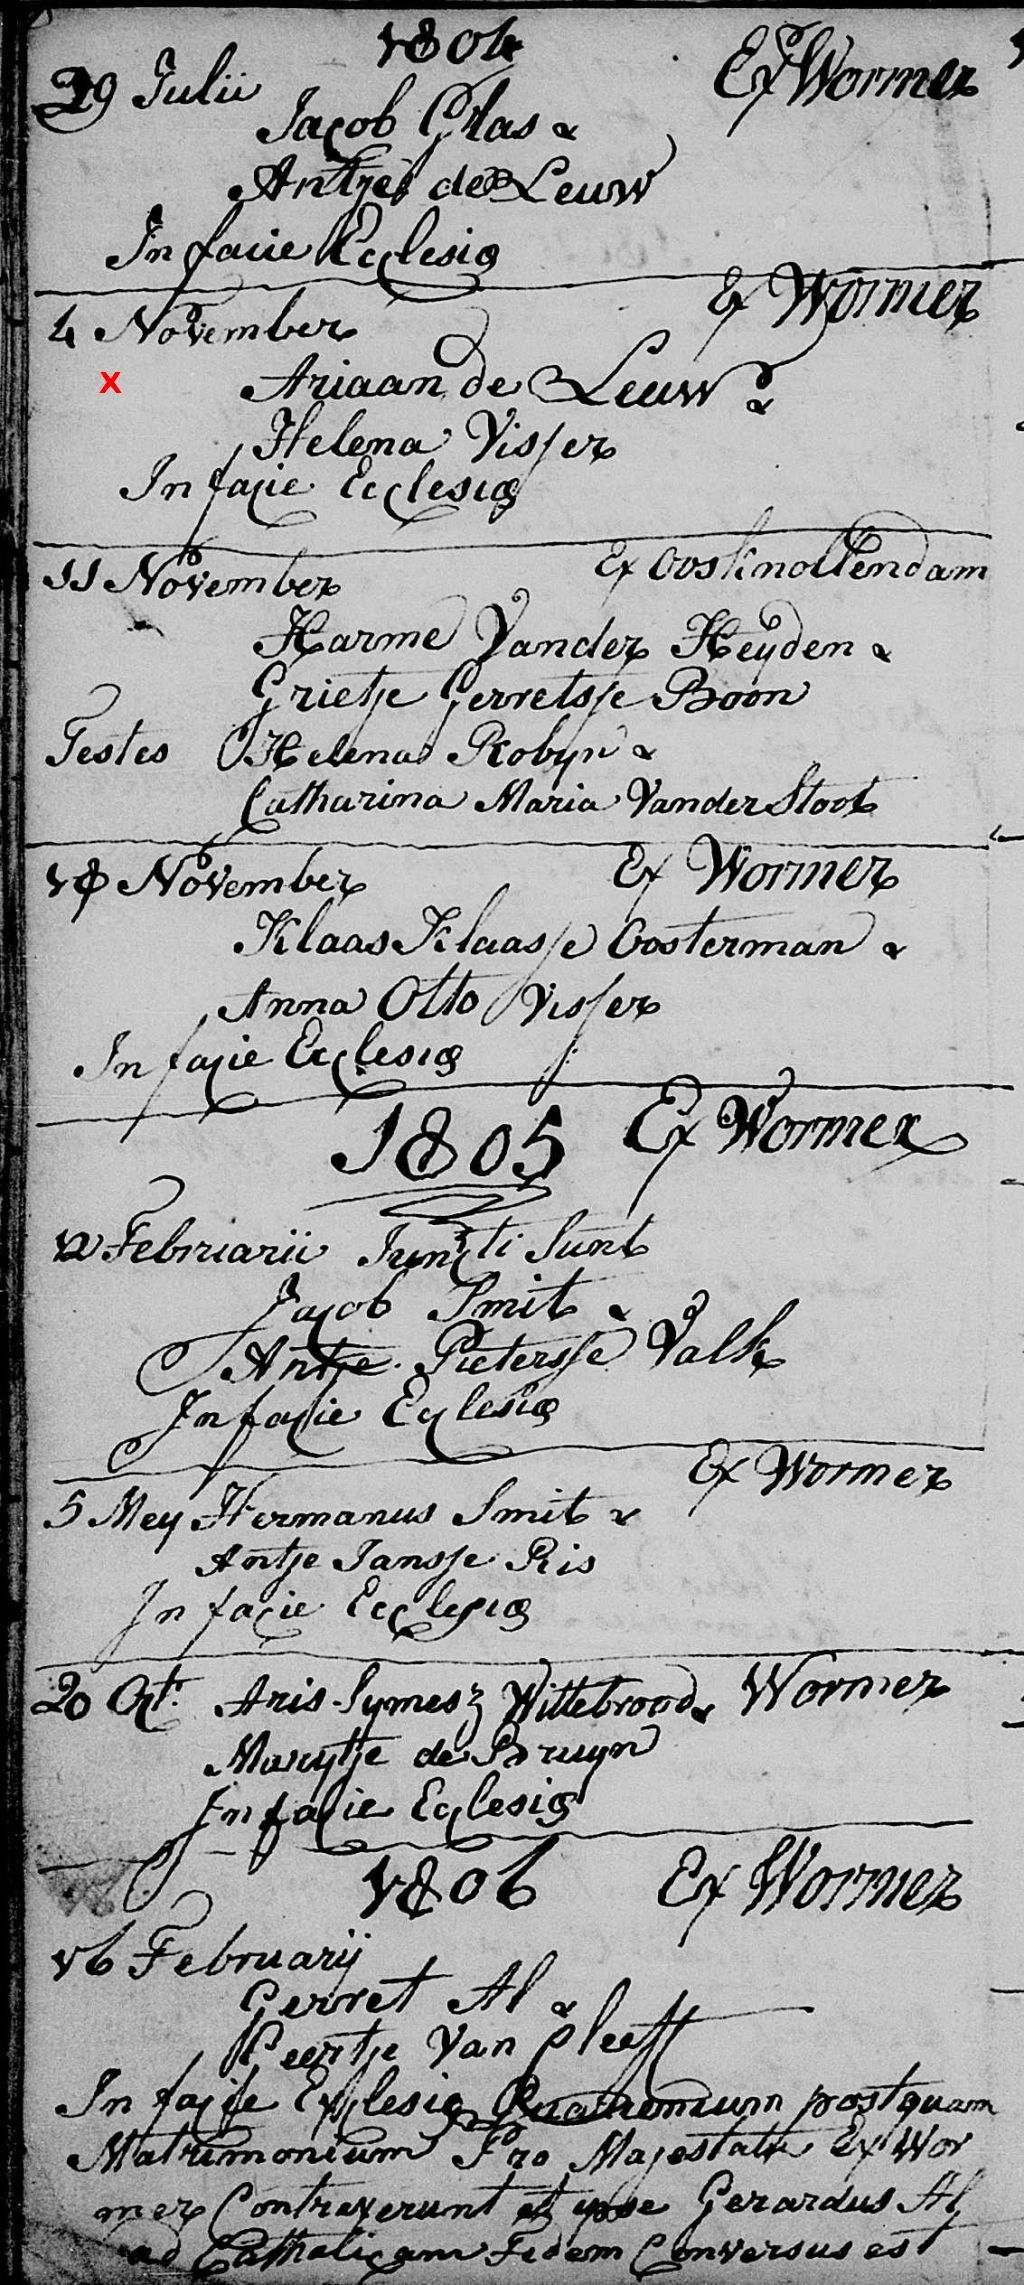 1804
29 Julii Ex Wormer
Jacob Glas &
Antje de Leuw
In facie Ecclesiæ
Ex Wormer
4 November
x Ariaan de Leuw &
Helena Visser
In facie Ecclesiæ
11 November Ex Oosknollendam
Harme Vander Heyden &
Grietje Gerretsse Boon
Testes Helena Robyn &
Catharina Maria Vander Stoot
18 November Ex Wormer
Klaas Klaasse Oosterman &
Anna Otto Visser
In facie Ecclesiæ
1805 Ex Wormer
12 Februarii Juncti Sunt
Jacob Smit &
Antje Pietersse Valk
In facie Ecclesiæ
Ex Wormer
5 Mey Hermanus Smit &
Antje Jansse Ris
In facie Ecclesiæ
20 Oct. Aris Symesz Wittebrood & Wormer
Marytje de Bruyn
In facie Ecclesiæ
1806 Ex Wormer
16 Februarij
Gerret Al &
Geertje Van Sleeft
In facie Ecclesiæ postquam
Matrimonium Pro Majestate Ex Wor
mer Contraxerunt et ipse Gerardus Al
ad Catholicam Fedem Conversus est